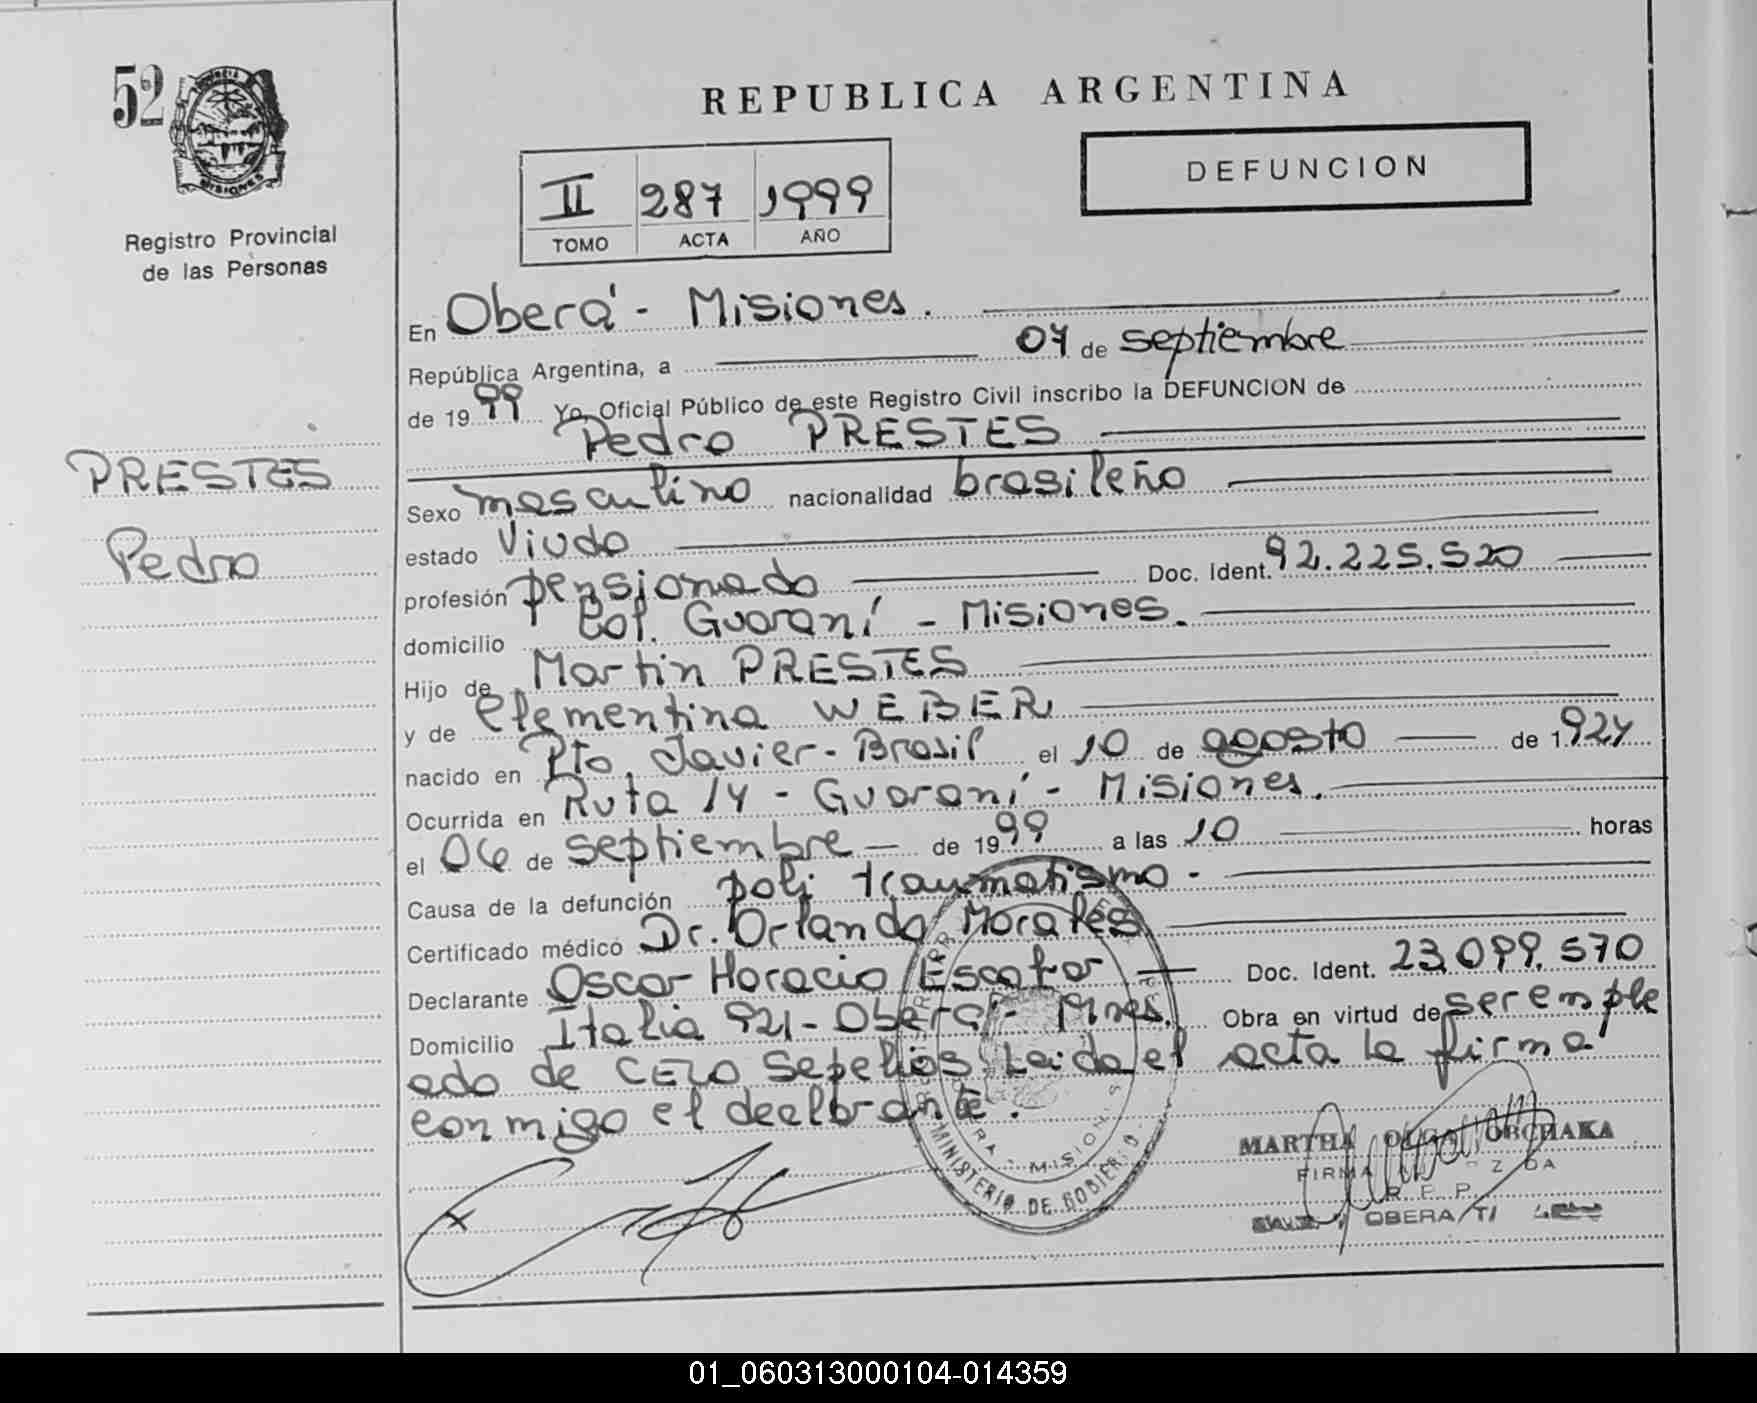 52
MISIONES
Registro Provincial
de las Personas
PRESTES
Pedro
REPUBLICA ARGENTINA
DEFUNCION
II 287 1999
TOMO ACTA AÑO
En Oberá - Misiones.
República Argentina, a 07 de septiembre
de 1999 Yo, Oficial Público de este Registro Civil inscribo la DEFUNCION de
Pedro PRESTES
Sexo masculino nacionalidad brasileño
estado Viudo
profesión pensionado Doc. Ident. 92.225.520
domicilio Col. Guaraní - Misiones.
Hijo de Martin PRESTES
y de Clementina WEBER
nacido en Pto. Javier - Brasil el 10 de agosto de 1.924
Ocurrida en Ruta 14 - Guaraní - Misiones.
el 06 de septiembre de 1999 a las 10 horas
Causa de la defunción poli traumatismo -
Certificado médico Dr. Orlando Morales
Declarante Oscar Horacio Doc. Ident. 23.099.570
Domicilio Italia 921 - Oberá - Mnes. Obra en virtud de ser emple
ado de CELO Sepelios. Leida el acta la firma
conmigo el declarante.
MINISTERIO DE GOBIERNO
MISIONES
MARTHA OLGA OBCHAKA
FIRMA
R. P. P.
OBERA
01_060313000104-014359